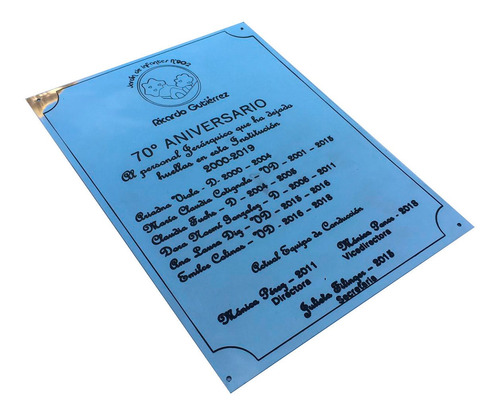 Jardín de Infantes N°902
Ricardo Gutiérrez
70° ANIVERSARIO
Al personal Jerárquico que ha dejado
huellas en esta Institución
2000-2019
Ariadna Viola - D. 2000 - 2004
María Claudia Caligaola - VD - 2001 - 2015
Claudia Fuchs - D - 2004 - 2008
Dora Noemí Gonzalez - D - 2008 - 2011
Ana Laura Diz - VD - 2015 - 2016
Emilce Colinas - VD - 2016 - 2018
Actual Equipo de Conducción
Mónica Pérez - 2011
Directora
Mónica Ponce - 2018
Vicedirectora
Julieta Filinger - 2018
Secretaria